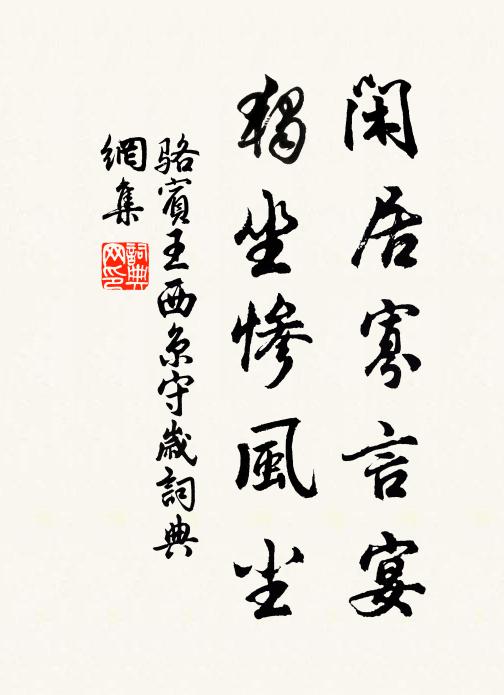 閑居寡言宴
獨坐慘風尘
駱賓王西京守歲詞典
網集
詞典网印